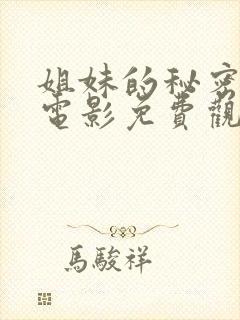 姐妹的秘密
電影免費觀
馬駿祥